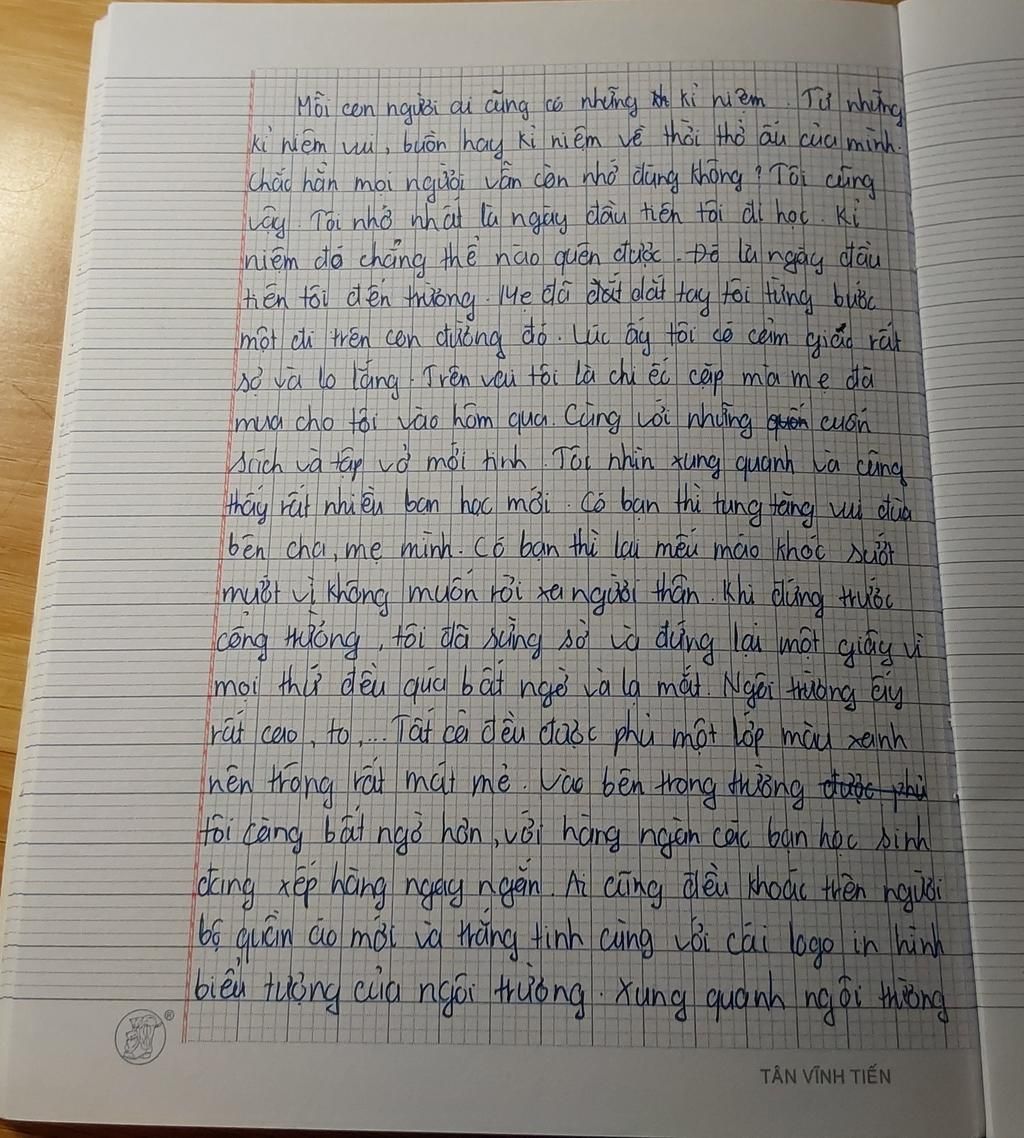 Mỗi con người ai cũng có những th kỉ niệm. Từ những
kỉ niệm vui, buồn hay kỉ niệm về thời thơ ấu của mình.
Chắc hẳn mọi người vẫn còn nhớ đúng không? Tôi cũng
vậy. Tôi nhớ nhất là ngày đầu tiên tôi đi học. Kỉ
niệm đó chẳng thể nào quên được. Đó là ngày đầu
tiên tôi đến trường. Mẹ đã dắt dắt tay tôi từng bước
một đi trên con đường đó. Lúc ấy tôi có cảm giác rất
sợ và lo lắng. Trên vai tôi là chiếc cặp mà mẹ đã
mua cho tôi vào hôm qua. Cùng với những quốn cuốn
sách và tập vở mới tinh. Tôi nhìn xung quanh và cũng
thấy rất nhiều bạn học mới. Có bạn thì tung tăng vui đùa
bên cha, mẹ mình. Có bạn thì lại mếu máo khóc sướt
mướt vì không muốn rời xa người thân. Khi đứng trước
cổng trường, tôi đã sững sờ và đứng lại một giây vì
mọi thứ đều quá bất ngờ và lạ mắt. Ngôi trường ấy
rất cao, to,... Tất cả đều được phủ một lớp màu xanh
nên trông rất mát mẻ. Vào bên trong trường được phủ
tôi càng bất ngờ hơn, với hàng ngàn các bạn học sinh
đang xếp hàng ngay ngắn. Ai cũng đều khoác trên người
bộ quần áo mới và trắng tinh cùng với cái logo in hình
biểu tượng của ngôi trường. Xung quanh ngôi trường
®
TÂN VĨNH TIẾN